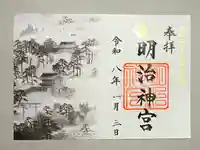 奉拝
明治神宮
令和八年一月三日